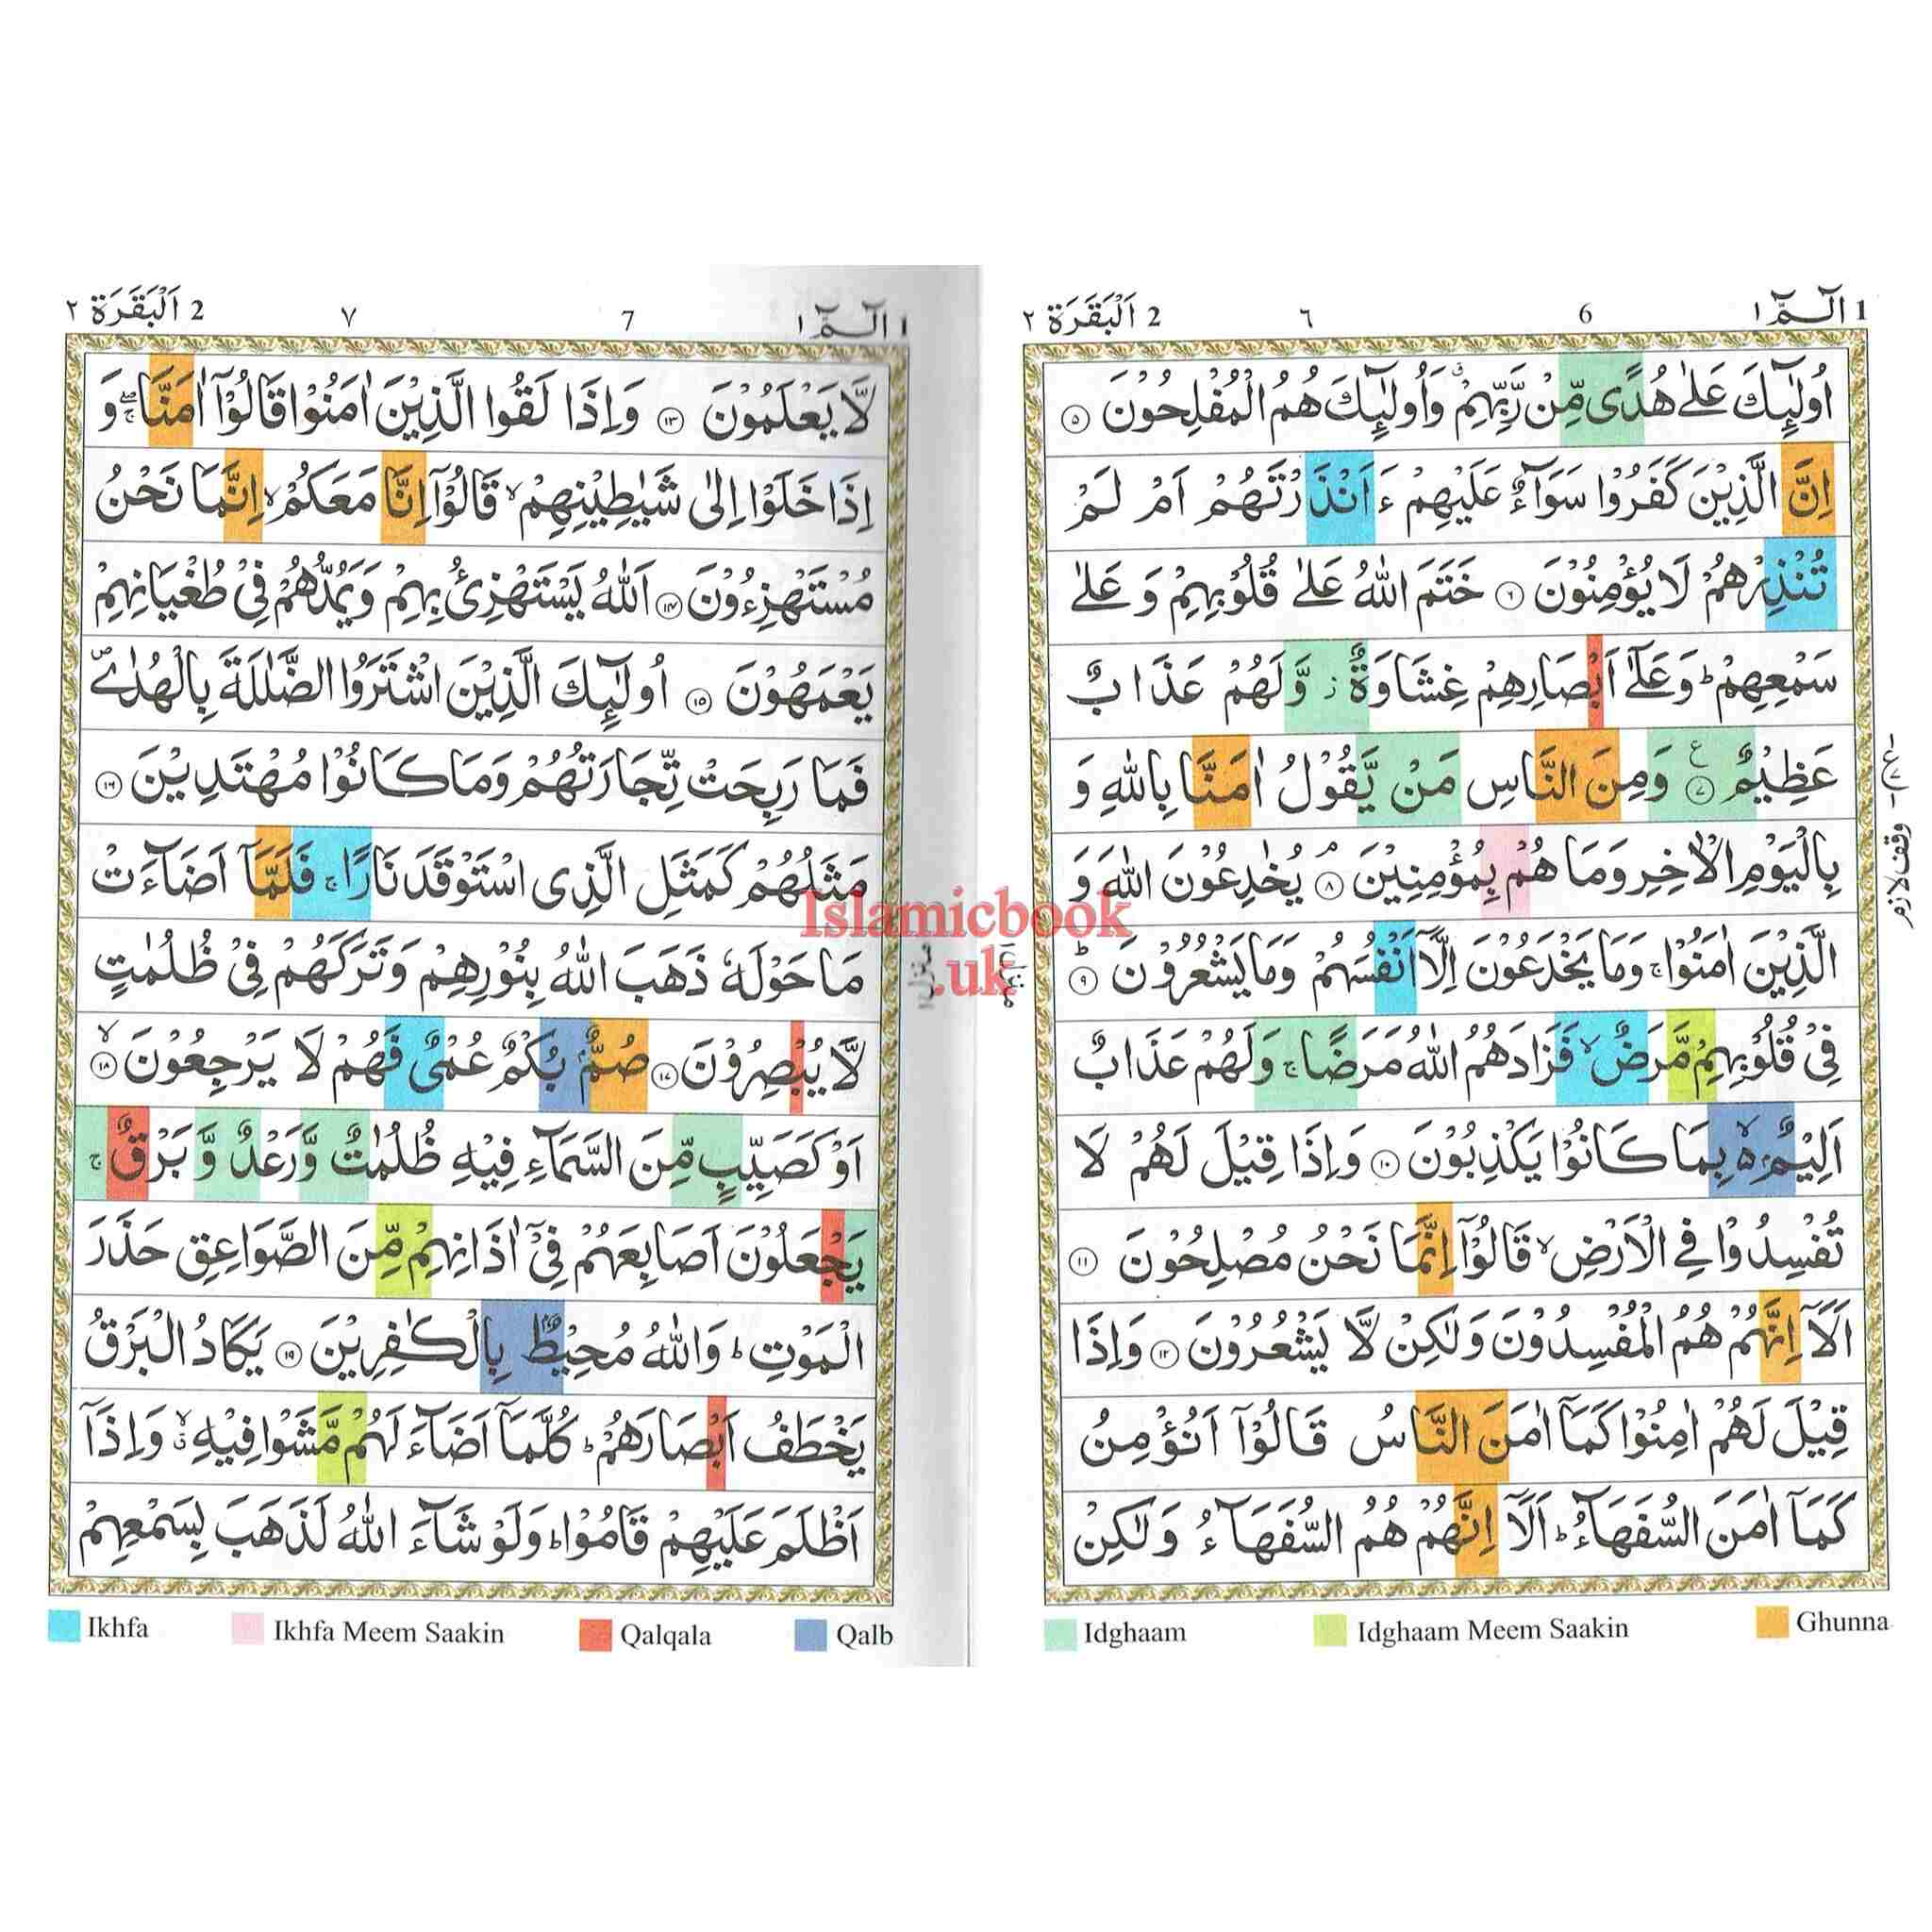 1 الٓمّٓ ١
6
٦
2 اَلْبَقَرَة ٢
اُولٰٓئِكَ عَلٰى هُدًى مِّنْ رَّبِّهِمْ ۗ وَاُولٰٓئِكَ هُمُ الْمُفْلِحُوْنَ ٥
اِنَّ الَّذِيْنَ كَفَرُوْا سَوَآءٌ عَلَيْهِمْ ءَ اَنْذَرْتَهُمْ اَمْ لَمْ
تُنْذِرْهُمْ لَا يُؤْمِنُوْنَ ٦ خَتَمَ اللّٰهُ عَلٰى قُلُوْبِهِمْ وَ عَلٰى
سَمْعِهِمْ ؕ وَ عَلٰٓى اَبْصَارِهِمْ غِشَاوَةٌ ز وَّ لَهُمْ عَذَابٌ
عَظِيْمٌ ٧ ع وَمِنَ النَّاسِ مَنْ يَّقُوْلُ اٰمَنَّا بِاللّٰهِ وَ
بِالْيَوْمِ الْاٰخِرِ وَمَا هُمْ بِمُؤْمِنِيْنَ ۘ ٨ يُخٰدِعُوْنَ اللّٰهَ وَ
الَّذِيْنَ اٰمَنُوْا ۚ وَمَا يَخْدَعُوْنَ اِلَّآ اَنْفُسَهُمْ وَمَا يَشْعُرُوْنَ ؕ ٩
فِيْ قُلُوْبِهِمْ مَّرَضٌ ۙ فَزَادَهُمُ اللّٰهُ مَرَضًا ۚ وَلَهُمْ عَذَابٌ
اَلِيْمٌۢ ۙ ٥ بِمَا كَانُوْا يَكْذِبُوْنَ ١٠ وَاِذَا قِيْلَ لَهُمْ لَا
تُفْسِدُوْا فِي الْاَرْضِ ۙ قَالُوْٓا اِنَّمَا نَحْنُ مُصْلِحُوْنَ ١١
اَلَآ اِنَّهُمْ هُمُ الْمُفْسِدُوْنَ وَلٰكِنْ لَّا يَشْعُرُوْنَ ١٢ وَاِذَا
قِيْلَ لَهُمْ اٰمِنُوْا كَمَآ اٰمَنَ النَّاسُ قَالُوْٓا اَنُؤْمِنُ
كَمَآ اٰمَنَ السُّفَهَآءُ ؕ اَلَآ اِنَّهُمْ هُمُ السُّفَهَآءُ وَلٰكِنْ
وقف لازم
منزل ١
Idghaam
Idghaam Meem Saakin
Ghunna
1 الٓمّٓ ١
7
٧
2 اَلْبَقَرَة ٢
لَّا يَعْلَمُوْنَ ١٣ وَاِذَا لَقُوا الَّذِيْنَ اٰمَنُوْا قَالُوْٓا اٰمَنَّا ۖۚ وَ
اِذَا خَلَوْا اِلٰى شَيٰطِيْنِهِمْ ۙ قَالُوْٓا اِنَّا مَعَكُمْ ۙ اِنَّمَا نَحْنُ
مُسْتَهْزِءُوْنَ ١٤ اَللّٰهُ يَسْتَهْزِئُ بِهِمْ وَيَمُدُّهُمْ فِيْ طُغْيَانِهِمْ
يَعْمَهُوْنَ ١٥ اُولٰٓئِكَ الَّذِيْنَ اشْتَرَوُا الضَّلٰلَةَ بِالْهُدٰى ۪
فَمَا رَبِحَتْ تِّجَارَتُهُمْ وَمَا كَانُوْا مُهْتَدِيْنَ ١٦
مَثَلُهُمْ كَمَثَلِ الَّذِى اسْتَوْقَدَ نَارًا ۚ فَلَمَّآ اَضَآءَتْ
مَا حَوْلَهٗ ذَهَبَ اللّٰهُ بِنُوْرِهِمْ وَتَرَكَهُمْ فِيْ ظُلُمٰتٍ
لَّا يُبْصِرُوْنَ ١٧ صُمٌّۢ بُكْمٌ عُمْىٌ فَهُمْ لَا يَرْجِعُوْنَ ۙ ١٨
اَوْ كَصَيِّبٍ مِّنَ السَّمَآءِ فِيْهِ ظُلُمٰتٌ وَّرَعْدٌ وَّ بَرْقٌ ۚ
يَجْعَلُوْنَ اَصَابِعَهُمْ فِيْٓ اٰذَانِهِمْ مِّنَ الصَّوَاعِقِ حَذَرَ
الْمَوْتِ ؕ وَاللّٰهُ مُحِيْطٌۢ بِالْكٰفِرِيْنَ ١٩ يَكَادُ الْبَرْقُ
يَخْطَفُ اَبْصَارَهُمْ ؕ كُلَّمَآ اَضَآءَ لَهُمْ مَّشَوْا فِيْهِ ۙ وَاِذَآ
اَظْلَمَ عَلَيْهِمْ قَامُوْا ؕ وَلَوْ شَآءَ اللّٰهُ لَذَهَبَ بِسَمْعِهِمْ
منزل ١
Ikhfa
Ikhfa Meem Saakin
Qalqala
Qalb
Islamicbook
.uk